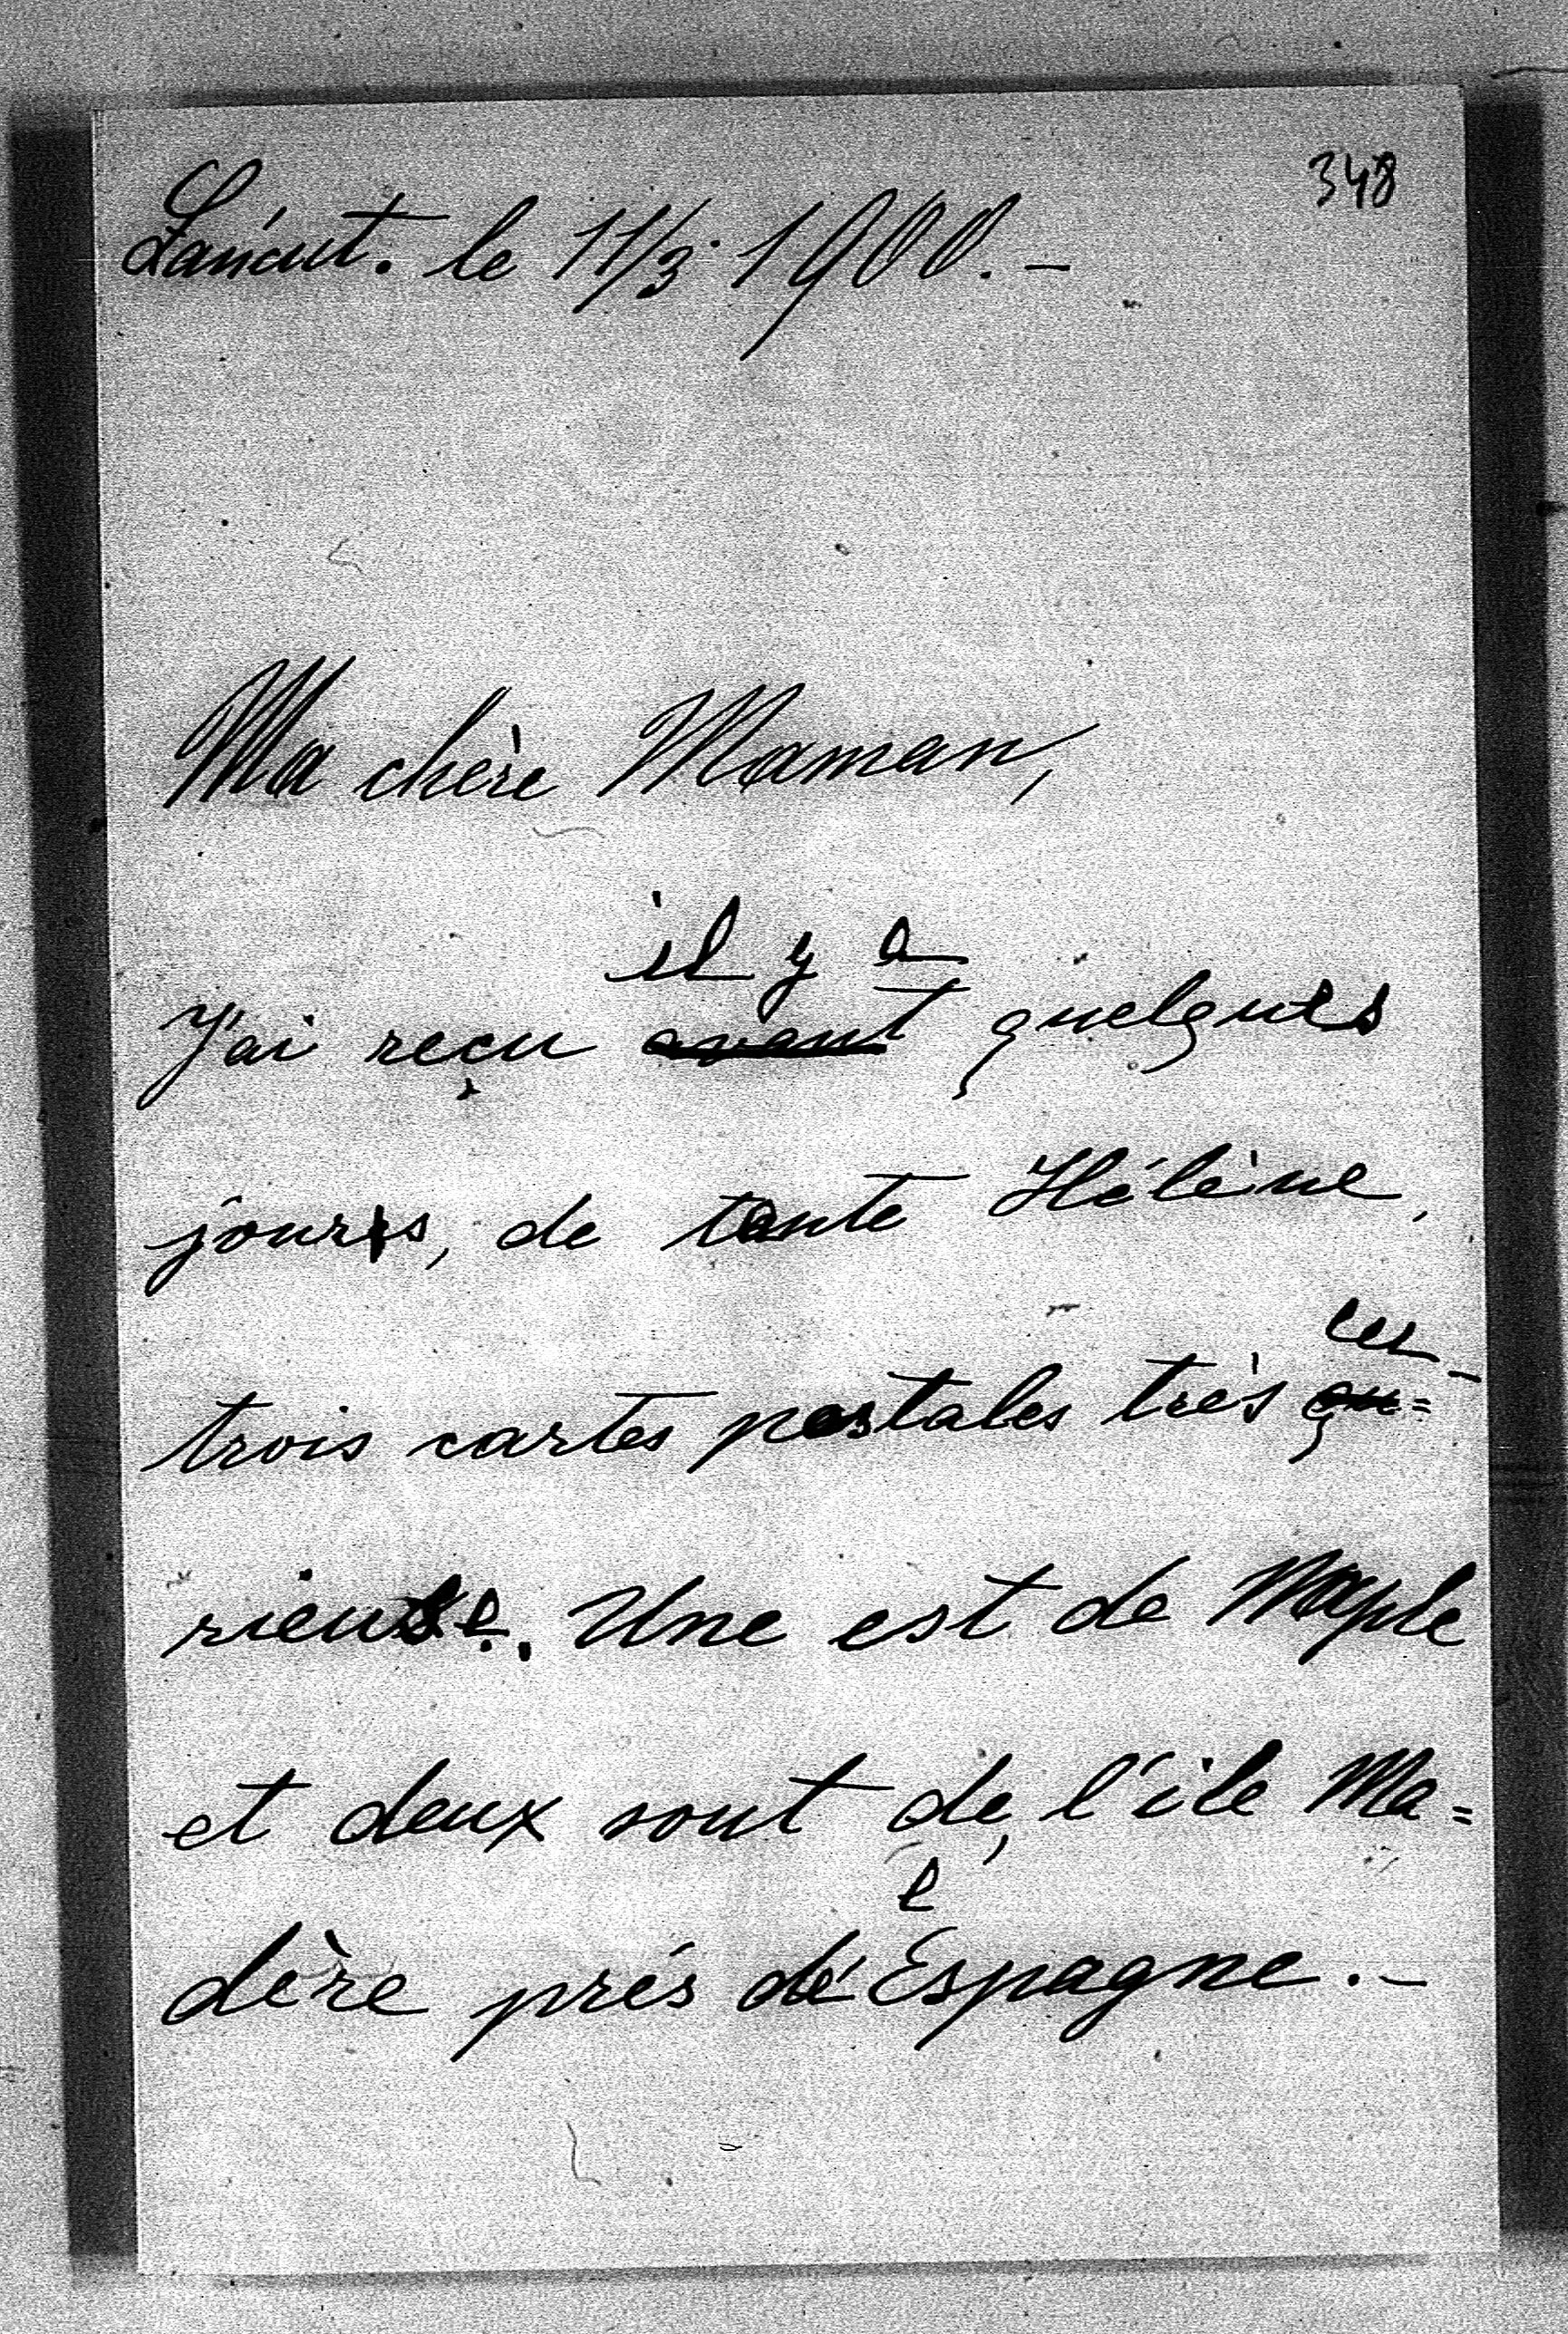 348
Łańcut. le 11/3. 1900.-
Ma chère Maman,
il y a
J'ai reçu avant quelques
jours, de tante Hélène,
cu-
trois cartes postales très qu=
rieuse. Une est de Naple
et deux sont de l'ile Ma=
e
dère près d'Espagne.-